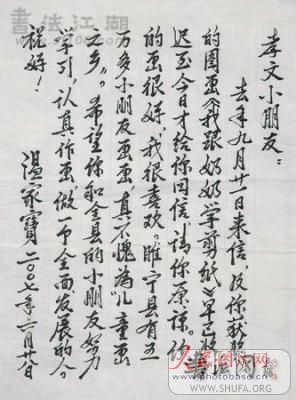 书法江湖
孝文小朋友：
去年九月廿一日来信，及你获奖
的图画《我跟奶奶学剪纸》早已收
迟至今日才给你回信，请你原谅。你
的画很好，我很喜欢。睢宁县有五
万多小朋友画画，真不愧为儿童画
之乡。希望你和全县的小朋友努力
学习，认真作画，做一个全面发展的人。
祝好！
温家宝 二〇〇七年 月廿八日
书法网
WWW.SHUFA.ORG
WWW.SHUFA.ORG